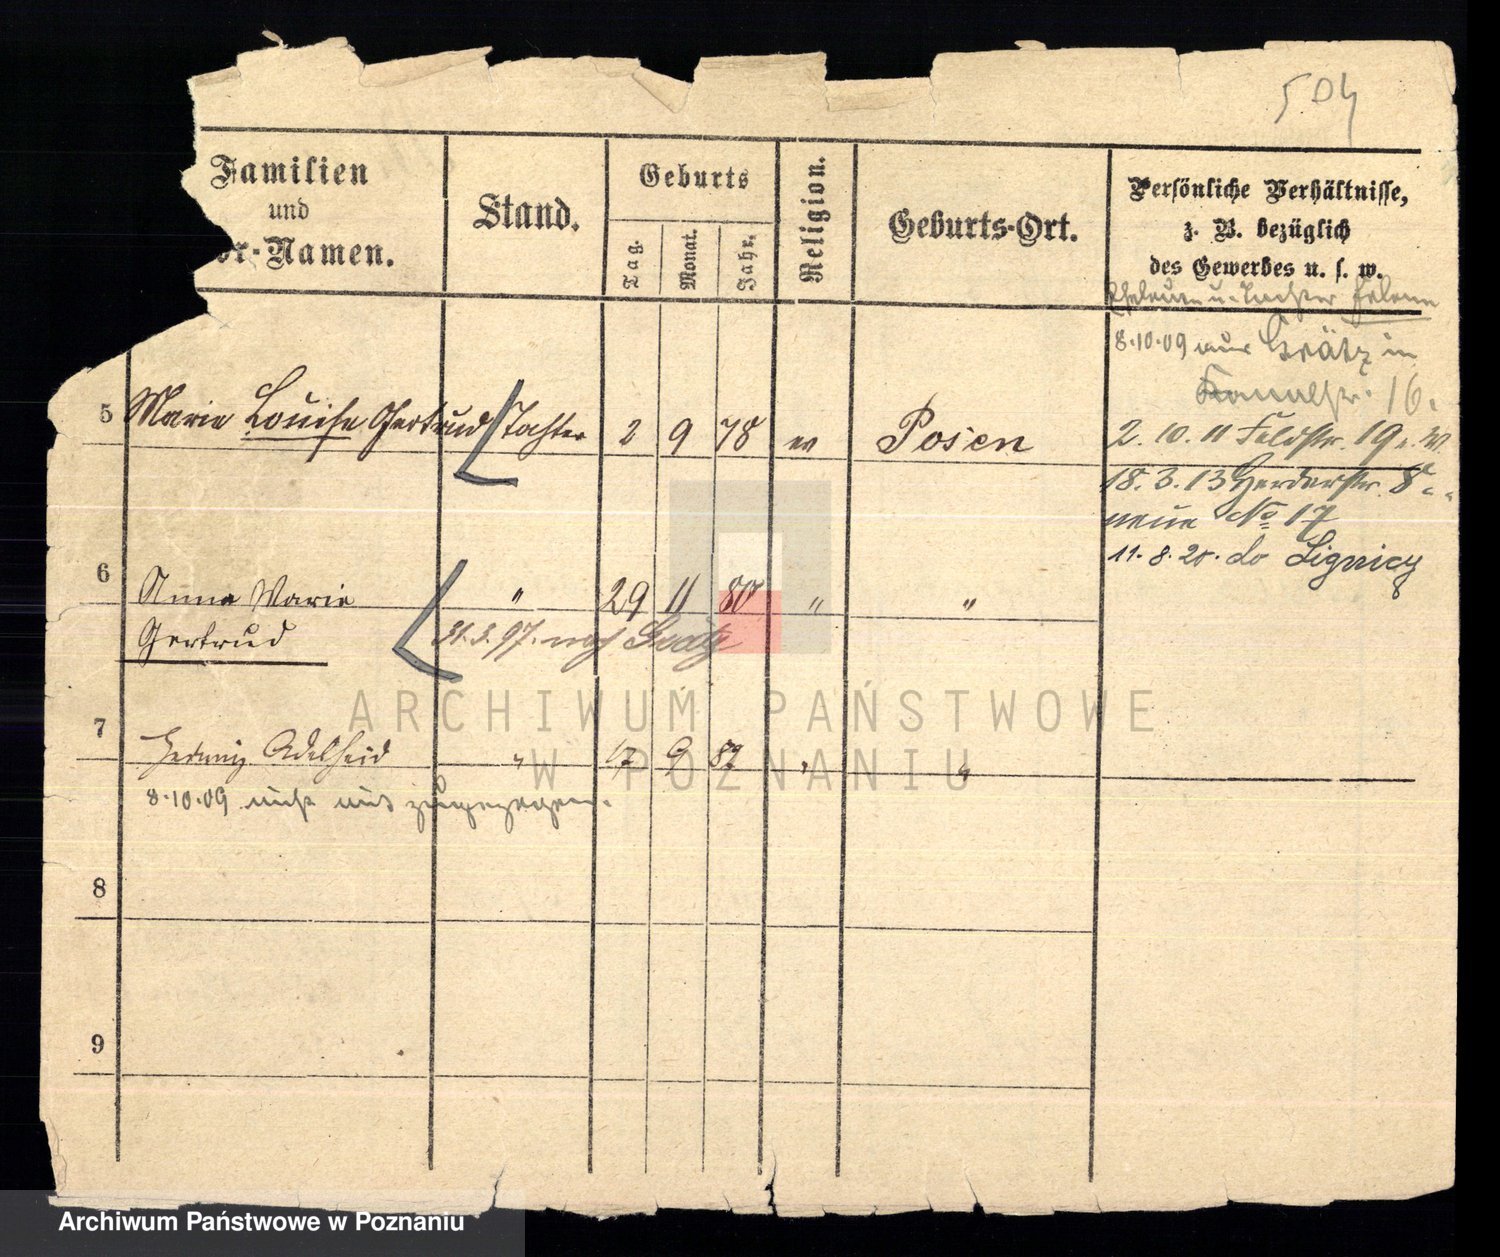 504
Familien
und
or-Namen.
Stand.
Geburts
Tag.
Monat.
Jahr.
Religion.
Geburts-Ort.
Persönliche Verhältnisse,
z. B. bezüglich
des Gewerbes u. s. w.
Eheleute u. Tochter Helene
8.10.09 aus Grätz in
Kanalstr. 16.
5 Marie Louise Gertrud Tochter 2 9 78 ev Posen
2. 10. 11 Feldstr. 19
18. 3. 13 Herderstr. 8
neue No 17
11. 8. 20. do Lignicy
6 Anna Marie " 29 11 80 " "
Gertrud
31.3.97. nach Gratz
7 Hedwig Adelheid " 17 9 82 " "
8.10.09 nicht mit zugezogen.
8
9
ARCHIWUM PAŃSTWOWE
W POZNANIU
Archiwum Państwowe w Poznaniu